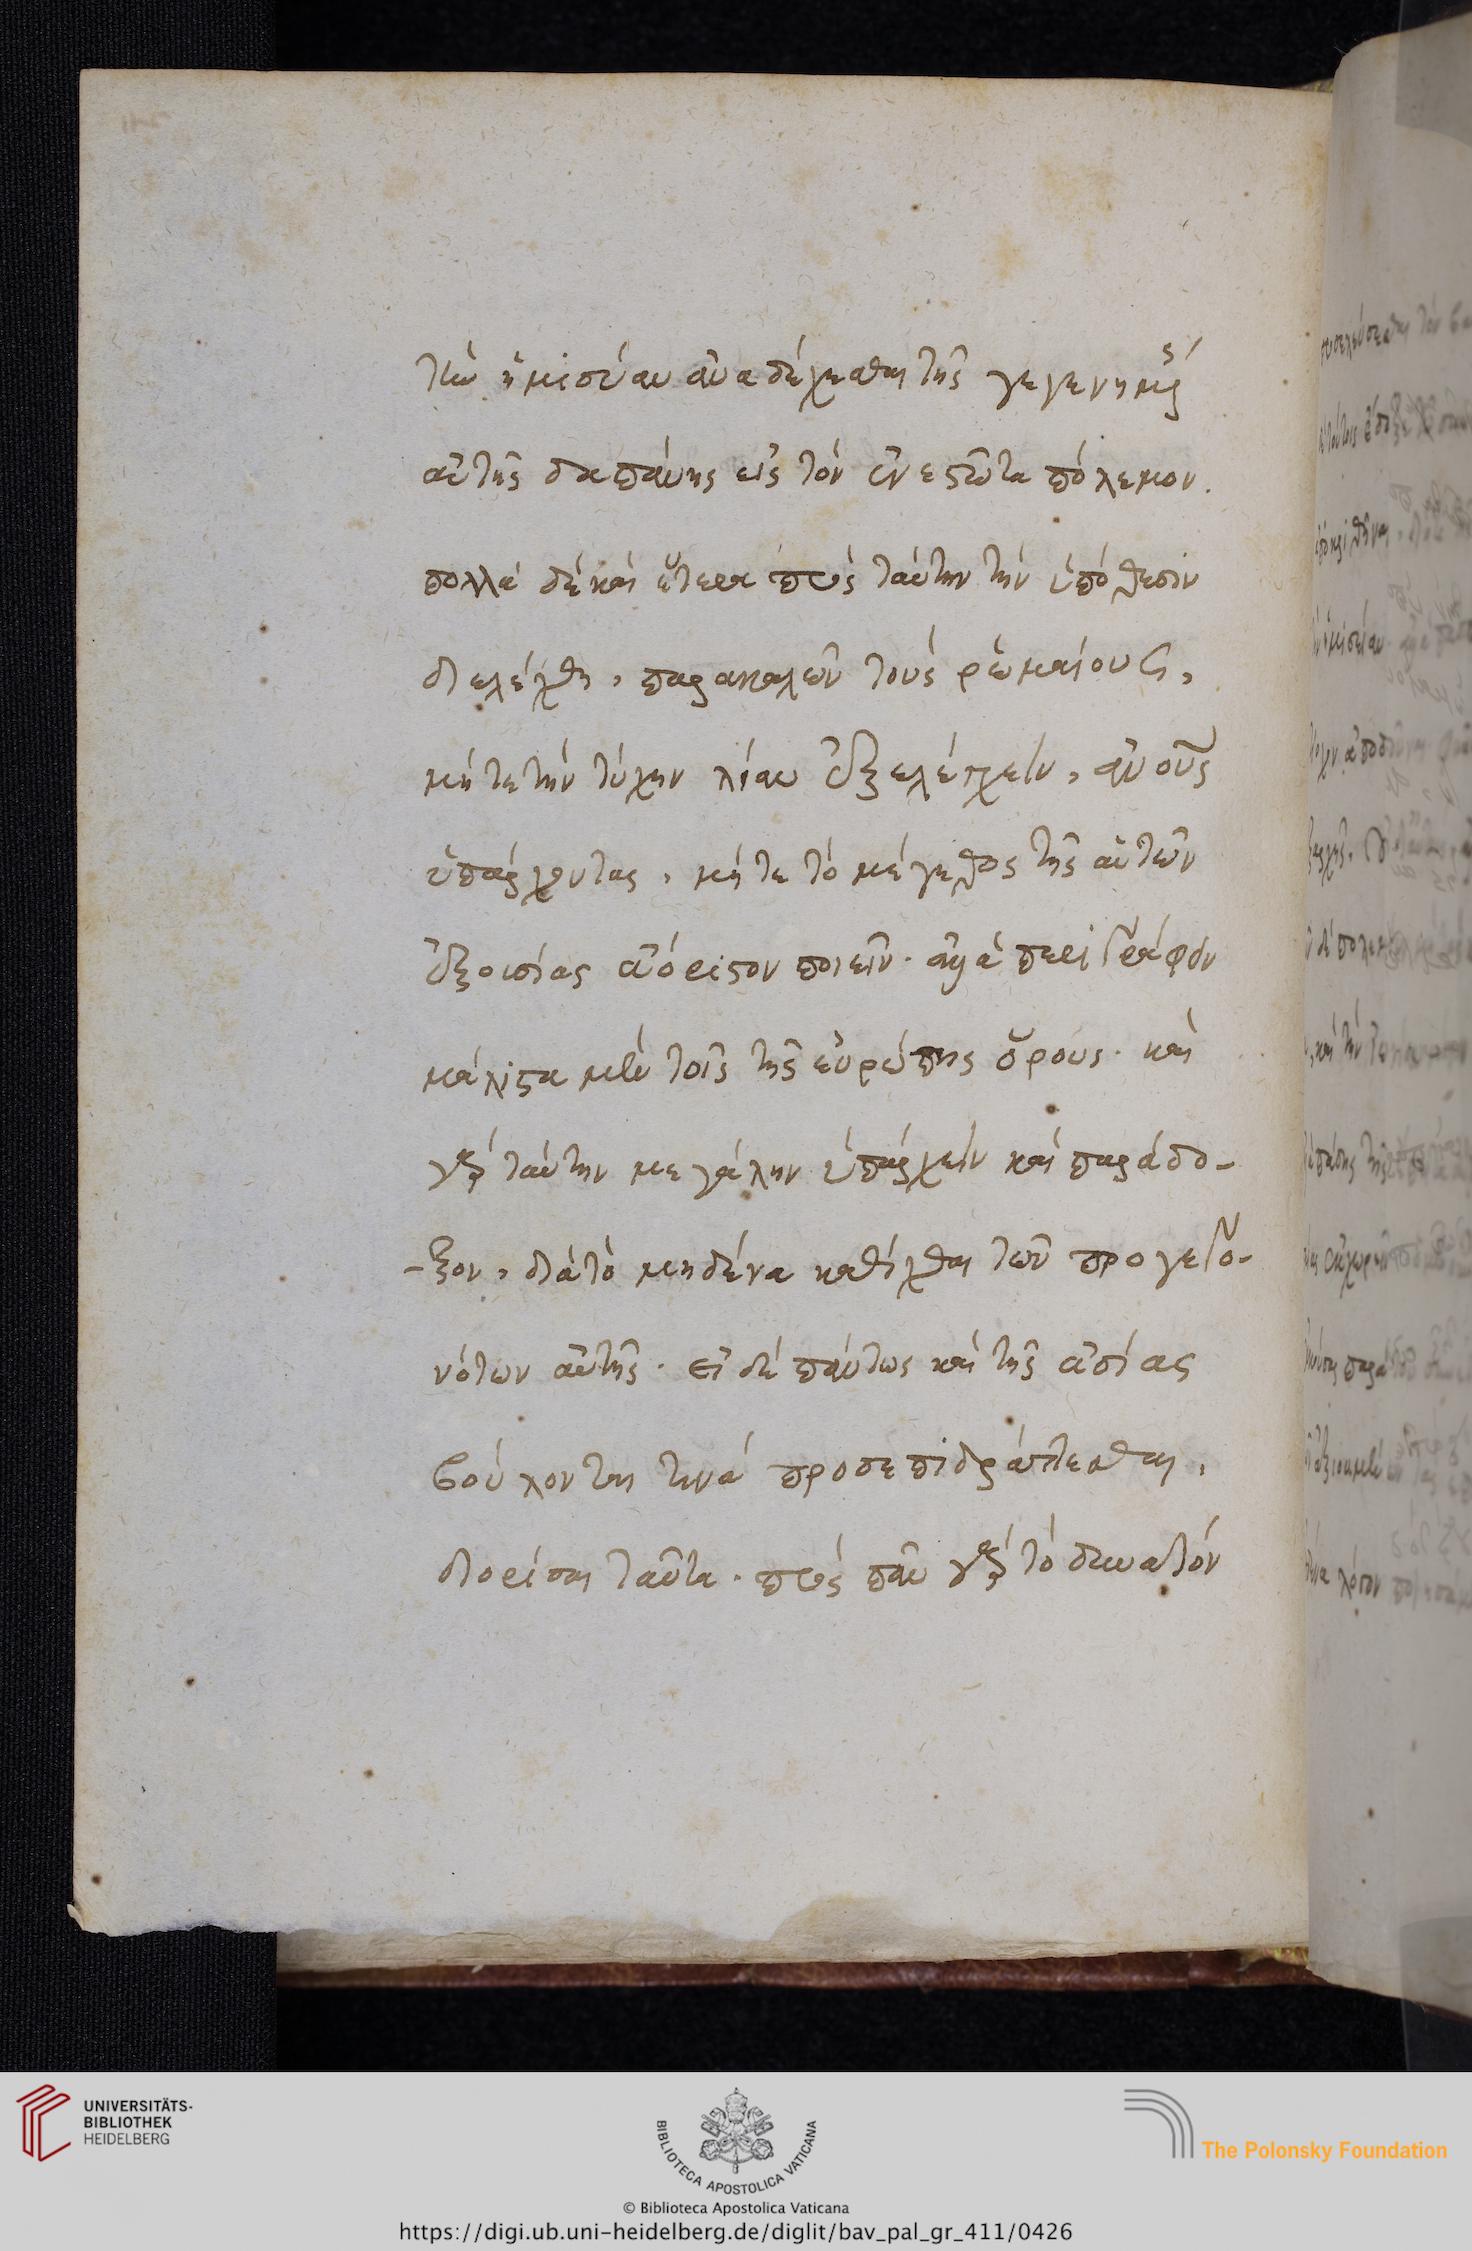 τὴν ἡμισείαν ἀναδέχεσθαι τῆς γεγενημένης
αὐτῆς δαπάνης εἰς τὸν ἐνεστῶτα πόλεμον.
πολλὰ δὲ καὶ ἕτερα πρὸς ταύτην τὴν ὑπόθεσιν
διελέχθη, παρακαλῶν τοὺς ῥωμαίους,
μήτε τὴν τύχην λίαν ἐξελέγχειν, ἀνθρώπους
ὑπάρχοντας, μήτε τὸ μέγεθος τῆς αὑτῶν
ἐξουσίας ἀόριστον ποιεῖν. ἀλλὰ περιγράφειν
μάλιστα μὲν τοῖς τῆς εὐρώπης ὅροις. καὶ
γὰρ ταύτην μεγάλην ὑπάρχειν καὶ παράδο-
-ξον, διὰ τὸ μηδένα καθίχθαι τῶν προγεγο-
νότων αὐτῆς. εἰ δὲ πάντως καὶ τῆς ἀσίας
βούλονται τινὰ προσεπιδράττεσθαι,
διορίσαι ταῦτα. πρὸς πᾶν γὰρ τὸ δυνατὸν
UNIVERSITÄTS-
BIBLIOTHEK
HEIDELBERG
BIBLIOTECA APOSTOLICA VATICANA
The Polonsky Foundation
© Biblioteca Apostolica Vaticana
https://digi.ub.uni-heidelberg.de/diglit/bav_pal_gr_411/0426